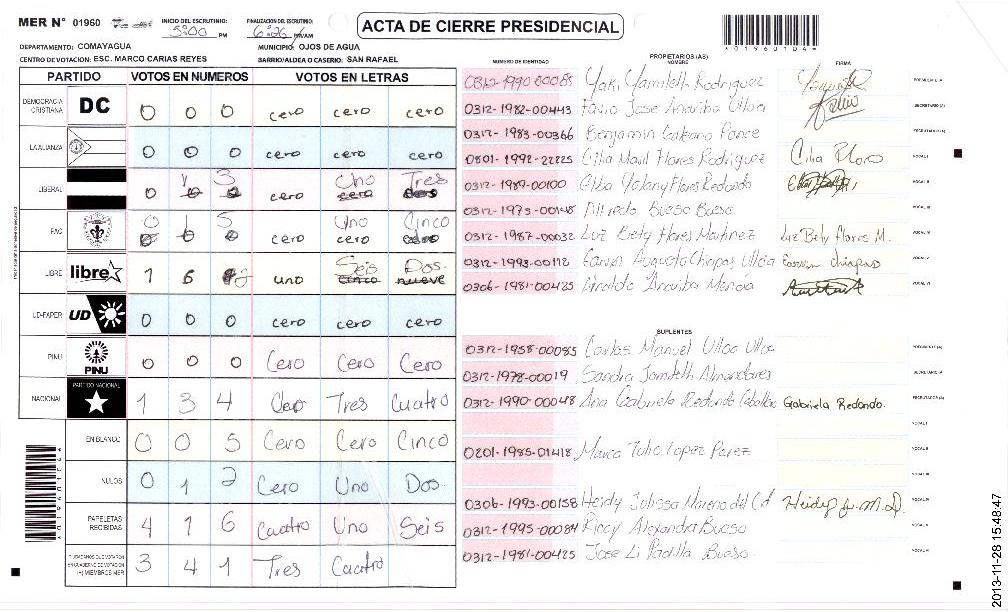 MER N° 01960
INICIO DEL ESCRUTINIO: 5:00 PM
FINALIZACION DEL ESCRUTINIO: 6:26 PM/AM
ACTA DE CIERRE PRESIDENCIAL
01960104
DEPARTAMENTO: COMAYAGUA
MUNICIPIO: OJOS DE AGUA
CENTRO DE VOTACION: ESC. MARCO CARIAS REYES
BARRIO/ALDEA O CASERIO: SAN RAFAEL
PARTIDO VOTOS EN NUMEROS VOTOS EN LETRAS
DEMOCRACIA CRISTIANA DC 0 0 0 cero cero cero
LA ALIANZA 0 0 0 cero cero cero
LIBERAL 0 1 3 cero Uno Tres
PAC 0 1 5 cero Uno Cinco
LIBRE libre 1 6 2 uno Seis Dos
UD-FAPER UD 0 0 0 cero cero cero
PINU PINU 0 0 0 Cero Cero Cero
NACIONAL PARTIDO NACIONAL 1 3 4 Tres Cuatro
EN BLANCO 0 0 5 Cero Cero Cinco
NULOS 0 1 2 Cero Uno Dos
PAPELETAS RECIBIDAS 4 1 6 Cuatro Uno Seis
CIUDADANOS QUE VOTARON EN CUADERNO DE VOTACION (+) MIEMBROS MER 3 4 1 Tres Cuatro
NUMERO DE IDENTIDAD
PROPIETARIOS (AS)
NOMBRE
FIRMA
0312-1990-00085 Yamileth Rodriguez PRESIDENTE (A)
0312-1982-00443 Jose Ulloa SECRETARIO (A)
0312-1983-00366 Benjamin Galeano Ponce ESCRUTADOR (A)
0801-1992-22225 Cilia Flores Rodriguez Cilia Flores VOCAL I
0312-1989-00100 Elba Yolany Flores Redondo VOCAL II
0312-1975-00148 Alfredo Bueso Bueso VOCAL III
0312-1987-00032 Luz Bety Flores Martinez Luz Bety Flores M. VOCAL IV
0312-1993-00112 Augusto Chiapas Ulloa VOCAL V
0306-1981-00425 VOCAL VI
SUPLENTES
0312-1958-00085 Carlos Manuel Ulloa Ulloa PRESIDENTE (A)
0312-1978-00019 Sandra SECRETARIO (A)
0312-1990-00048 Ana Gabriela Redondo Gabriela Redondo. ESCRUTADOR (A)
VOCAL I
0201-1985-01418 Marco Tulio Lopez Perez VOCAL II
VOCAL III
0306-1993-00158 Heidy Julissa Moreno del Cd VOCAL IV
0312-1995-00084 Alejandra Bueso VOCAL V
0312-1981-00425 Jose Li Padilla Bueso VOCAL VI
2013-11-28 15:48:47